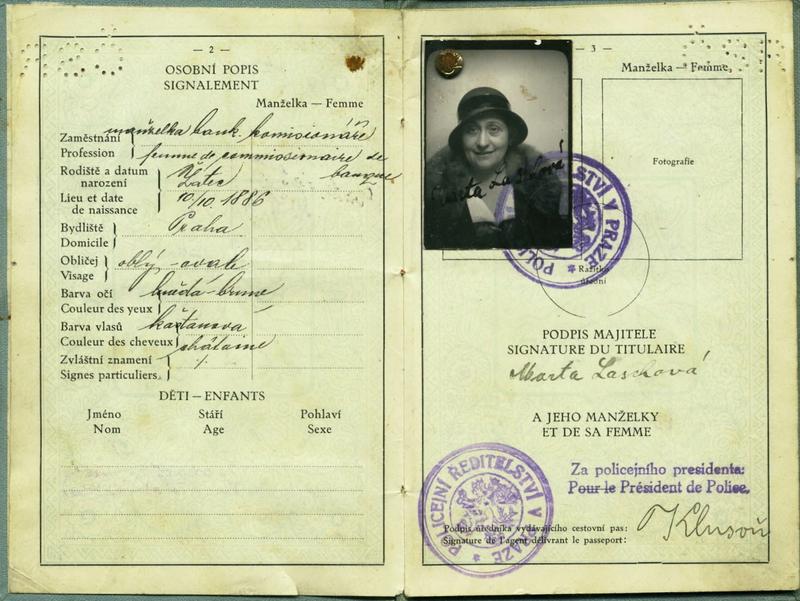 — 2 —
OSOBNÍ POPIS
SIGNALEMENT
Manželka — Femme
Zaměstnání manželka bank. komisionáře
Profession femme de commissionaire de banque
Rodiště a datum narození Žatec
Lieu et date de naissance 10/10 1886
Bydliště Praha
Domicile
Obličej oblý - ovale
Visage
Barva očí hnědá - brune
Couleur des yeux
Barva vlasů kaštanová
Couleur des cheveux châtaine
Zvláštní znamení ./.
Signes particuliers
DĚTI — ENFANTS
Jméno Stáří Pohlaví
Nom Age Sexe
— 3 —
Manželka — Femme
Fotografie
Marta Laschová
POLICEJNÍ ŘEDITELSTVÍ V PRAZE
Razítko úřední
PODPIS MAJITELE
SIGNATURE DU TITULAIRE
Marta Laschová
A JEHO MANŽELKY
ET DE SA FEMME
Za policejního presidenta:
Pour le Président de Police.
POLICEJNÍ ŘEDITELSTVÍ V PRAZE
Podpis úředníka vydávajícího cestovní pas:
Signature de l'agent délivrant le passeport:
Klusoň